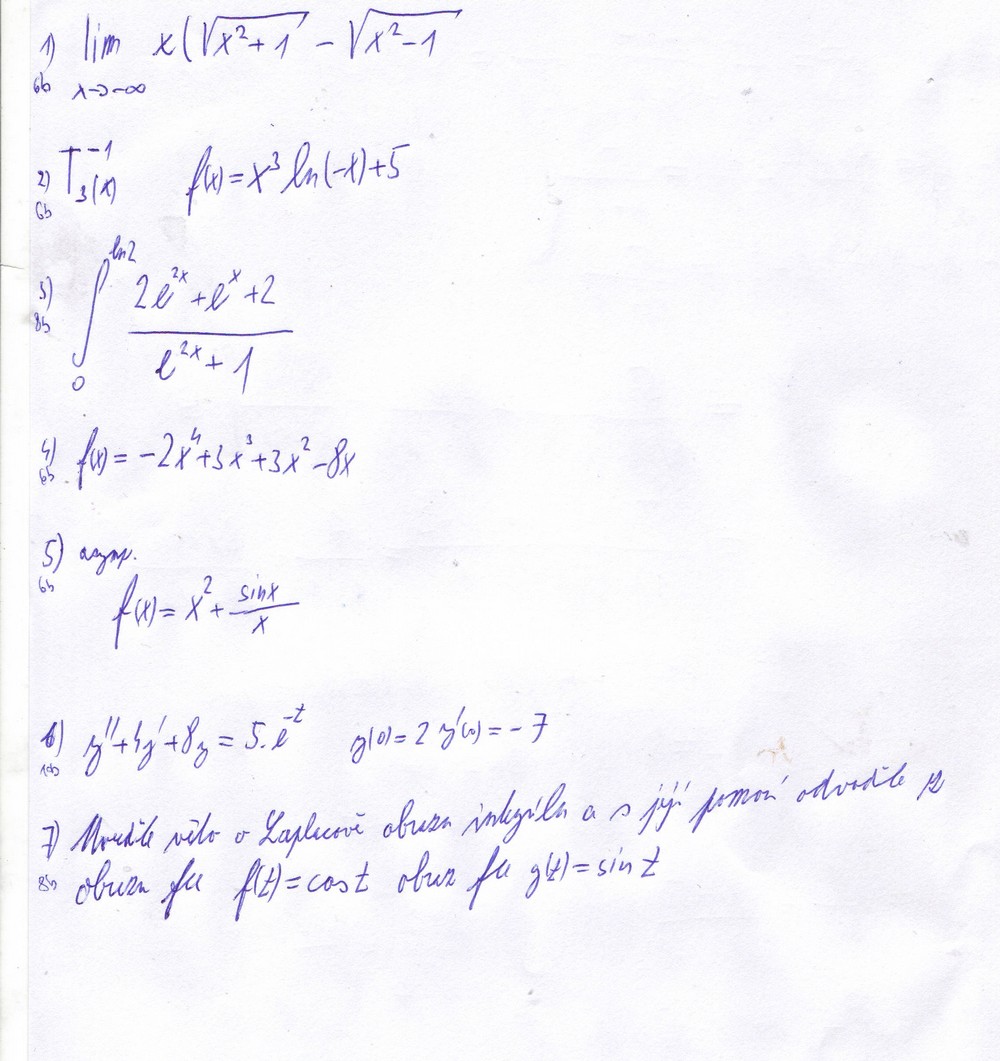 1) lim x(√x²+1 - √x²-1
6b x→-∞
2) T₃⁻¹(x) f(x)=x³ ln(-x)+5
6b
3) ∫₀^ln2 (2e^2x+e^x+2)/(e^2x+1)
8b
4) f(x)= -2x⁴+3x³+3x²-8x
6b
5) asymp.
6b
f(x)= x²+ sinx/x
6) y''+4y'+8y = 5.e^-t y(0)=2 y'(0)= -7
10b
7) Uveďte větu o Laplaceově obrazu integrálu a s její pomocí odvodíte z
8b obrazu fce f(t)=cost obraz fce g(t)=sin t